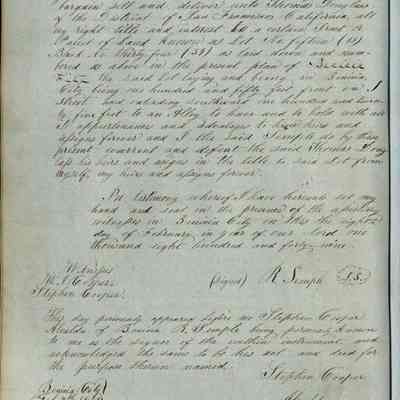 bargain sell and deliver unto Thomas Douglass
of the District of San Francisco California, all
my right title and interest to a certain Tract &
Parcel of Land Known as Lot No fifteen (15)
Block No thirty four (34) as laid down and num-
bered as above in the present plan of Benicia
City the said Lot laying and being in Benicia
City being one hundred and fifty feet front on I
Street and extending southward one hundred and twen-
ty five feet to an Alley to have and to hold with all
it appurtenances and advantages to his heirs and
assigns forever and I the said Semple do by these
present warrant and defend the said Thomas Doug
lass his heirs and assigns in the title to said Lot from
myself, my heirs and assigns forever.
In testimony whereof I have hereunto set my
hand and seal in the presence of the
witnesses in Benicia City on this the eighth
day of February, in year of our lord one
thousand eight hundred and forty nine.
Witness
W. I. Cooper (signed) R Semple L.S.
Stephen Cooper
This day personally appeared before me Stephen Cooper
Alcalde of Benicia R. Semple being personally known
to me is the signer of the within instrument, and
acknowledged the same to be his act and deed for
the purpose therein named.
Stephen Cooper
Benicia City